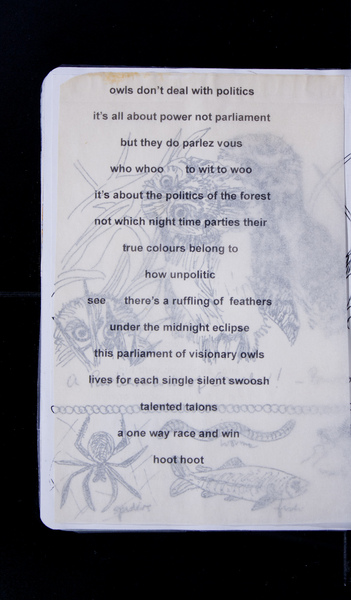 owls don't deal with politics
it's all about power not parliament
but they do parlez vous
who whoo to wit to woo
it's about the politics of the forest
not which night time parties their
true colours belong to
how unpolitic
see there's a ruffling of feathers
under the midnight eclipse
this parliament of visionary owls
lives for each single silent swoosh
talented talons
a one way race and win
hoot hoot
spiders
fish